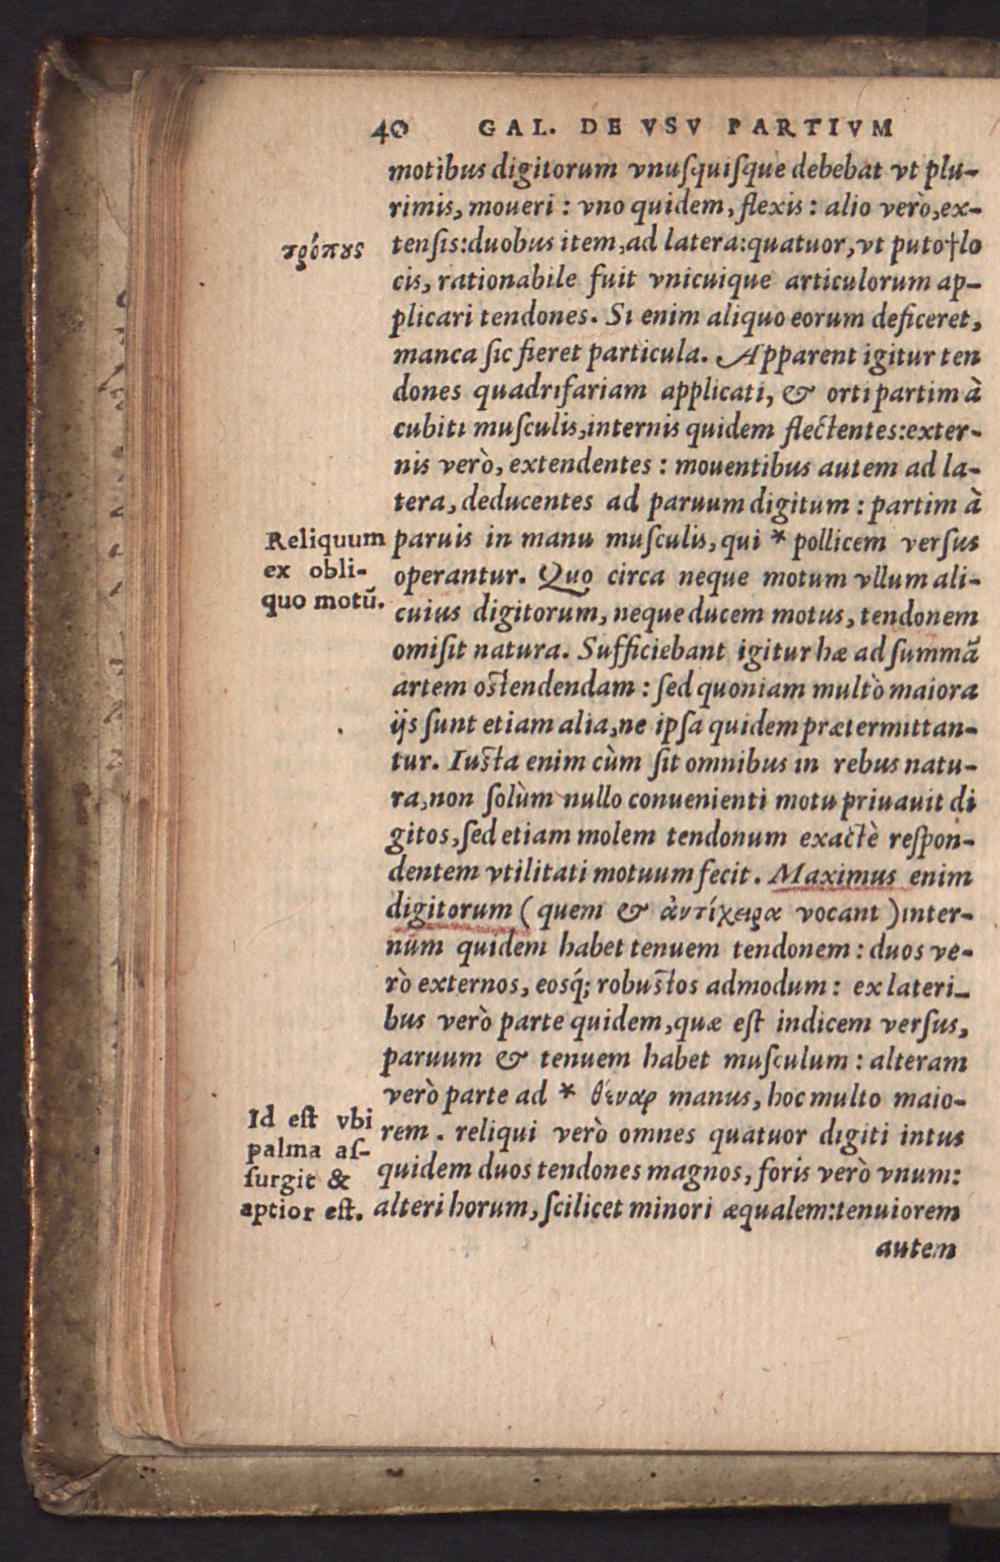 40 GAL. DE VSV PARTIVM
motibus digitorum vnuſquiſque debebat vt plu-
rimis, moueri : vno quidem, flexis : alio verò, ex-
τρόπους
tenſis: duobus item, ad latera: quatuor, vt puto†lo
cis, rationabile fuit vnicuique articulorum ap-
plicari tendones. Si enim aliquo eorum deficeret,
manca ſic fieret particula. Apparent igitur ten
dones quadrifariam applicati, & orti partim à
cubiti muſculis, internis quidem flectentes: exter-
nis verò, extendentes : mouentibus autem ad la-
tera, deducentes ad paruum digitum : partim à
Reliquum
ex obli-
quo motũ.
paruis in manu muſculis, qui * pollicem verſus
operantur. Quo circa neque motum vllum ali-
cuius digitorum, neque ducem motus, tendonem
omiſit natura. Sufficiebant igitur hæ ad ſummã
artem oſtendendam : ſed quoniam multò maiora
ijs ſunt etiam alia, ne ipſa quidem prætermittan-
tur. Iuſta enim cùm ſit omnibus in rebus natu-
ra, non ſolùm nullo conuenienti motu priuauit di
gitos, ſed etiam molem tendonum exactè reſpon-
dentem vtilitati motuum fecit. Maximus enim
digitorum (quem & ἀντίχειρα vocant) inter-
num quidem habet tenuem tendonem : duos ve-
rò externos, eosq́; robuſtos admodum : ex lateri-
bus verò parte quidem, quæ eſt indicem verſus,
paruum & tenuem habet muſculum : alteram
verò parte ad * θέναρ manus, hoc multo maio-
Id eſt vbi
palma aſ-
ſurgit &
aptior eſt.
rem . reliqui verò omnes quatuor digiti intus
quidem duos tendones magnos, foris verò vnum:
alteri horum, ſcilicet minori æqualem: tenuiorem
autem